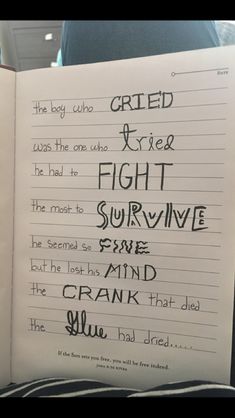 the boy who CRIED
was the one who tried
he had to FIGHT
the most to SURVIVE
he seemed so FINE
but he lost his MIND
the CRANK that died
the Glue had dried.....
If the Son sets you free, you will be free indeed.
JOHN 8:36